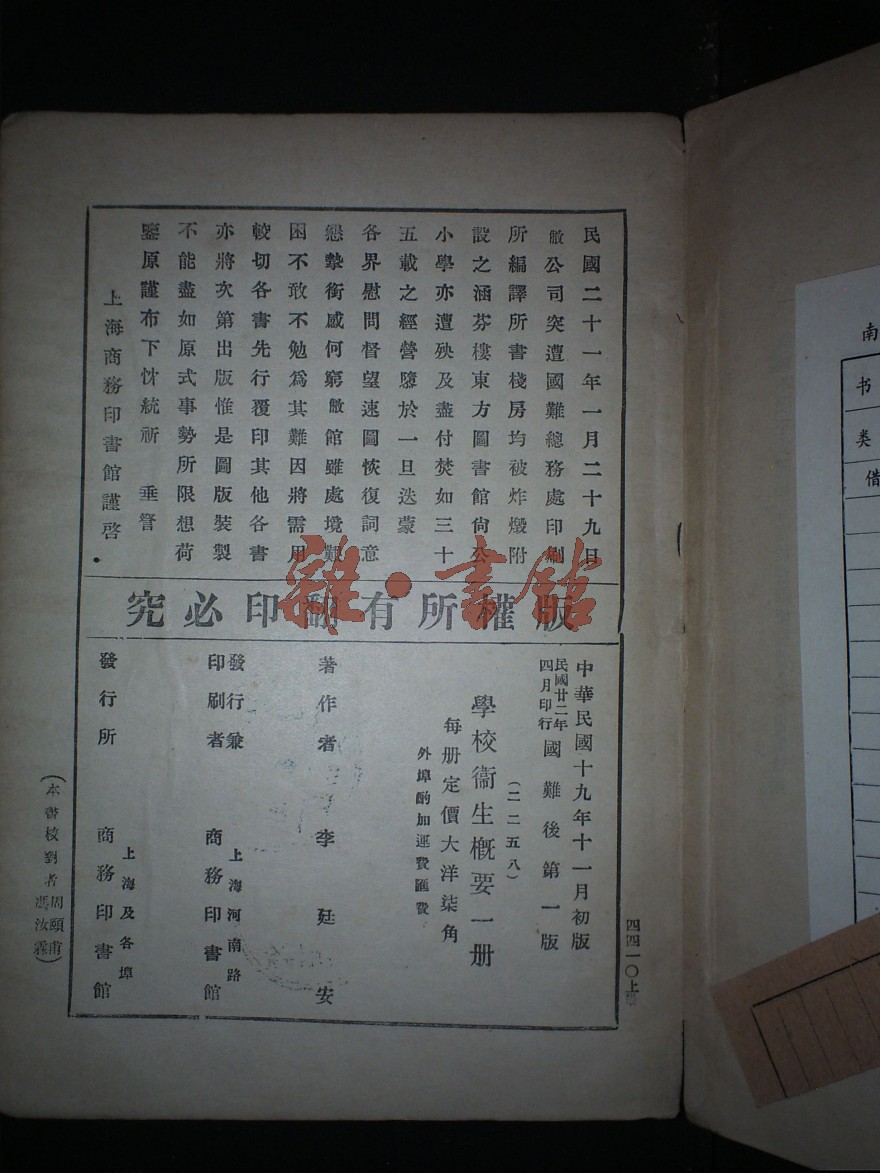 民國二十一年一月二十九日
敝公司突遭國難總務處印刷
所編譯所書棧房均被炸燬附
設之涵芬樓東方圖書館尙公
小學亦遭殃及盡付焚如三十
五載之經營隳於一旦迭蒙
各界慰問督望速圖恢復詞意
懇摯銜感何窮敝館雖處境艱
困不敢不勉爲其難因將需用
較切各書先行覆印其他各書
亦將次第出版惟是圖版裝製
不能盡如原式事勢所限想荷
鑒原謹布下忱統祈 垂詧
上海商務印書館謹啓
究必印翻有所權版
中華民國十九年十一月初版
民國廿二年四月印行 國難後第一版
(二二五八)
學校衞生概要一册
每册定價大洋柒角
外埠酌加運費匯費
著作者 李廷安
發行兼印刷者 上海河南路 商務印書館
發行所 上海及各埠 商務印書館
(本書校對者周頤甫 馮汝霖)
四四一〇上
雜·書館
南
书
类
借